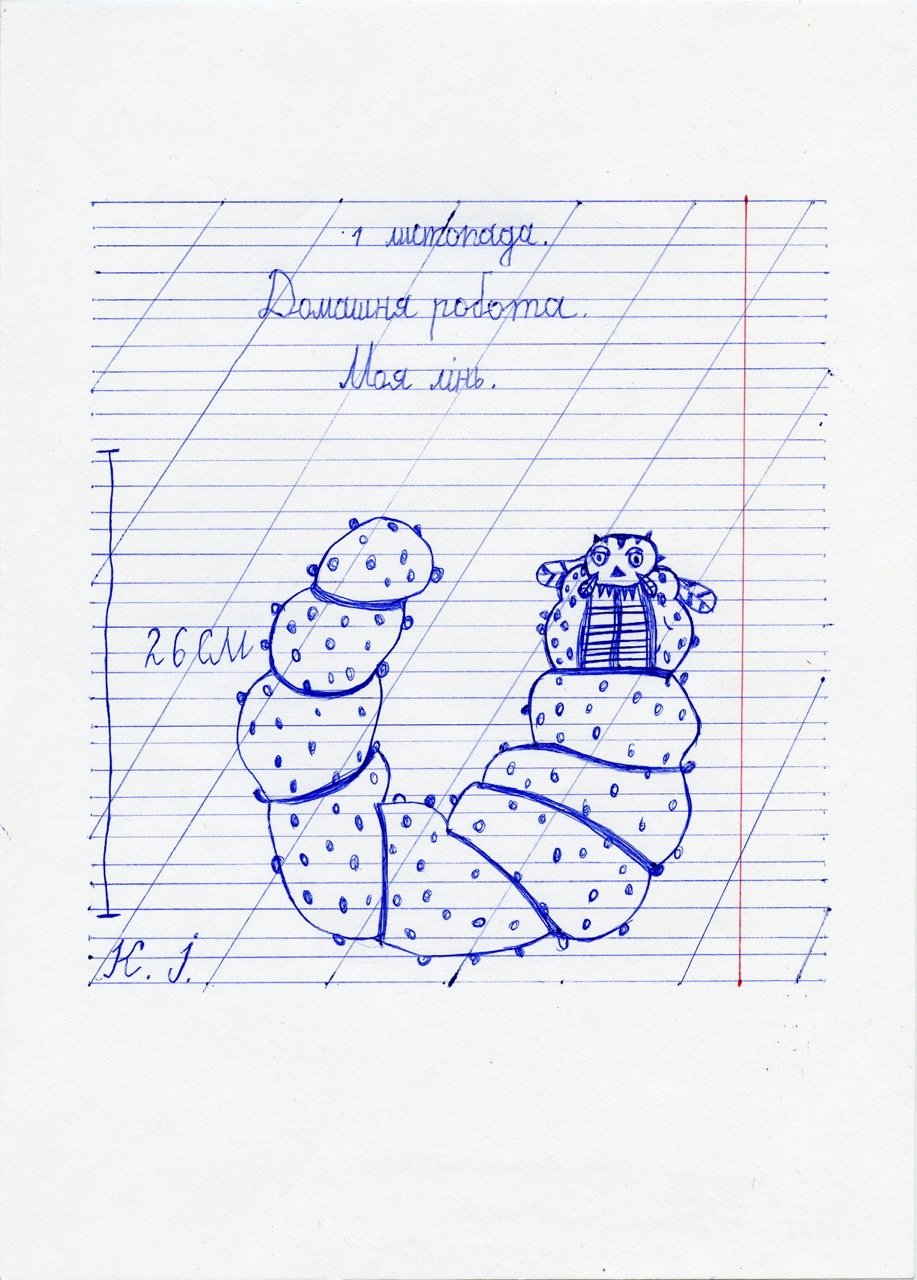 1 листопада.
Домашня робота.
Моя лінь.
26 СМ
К. І.